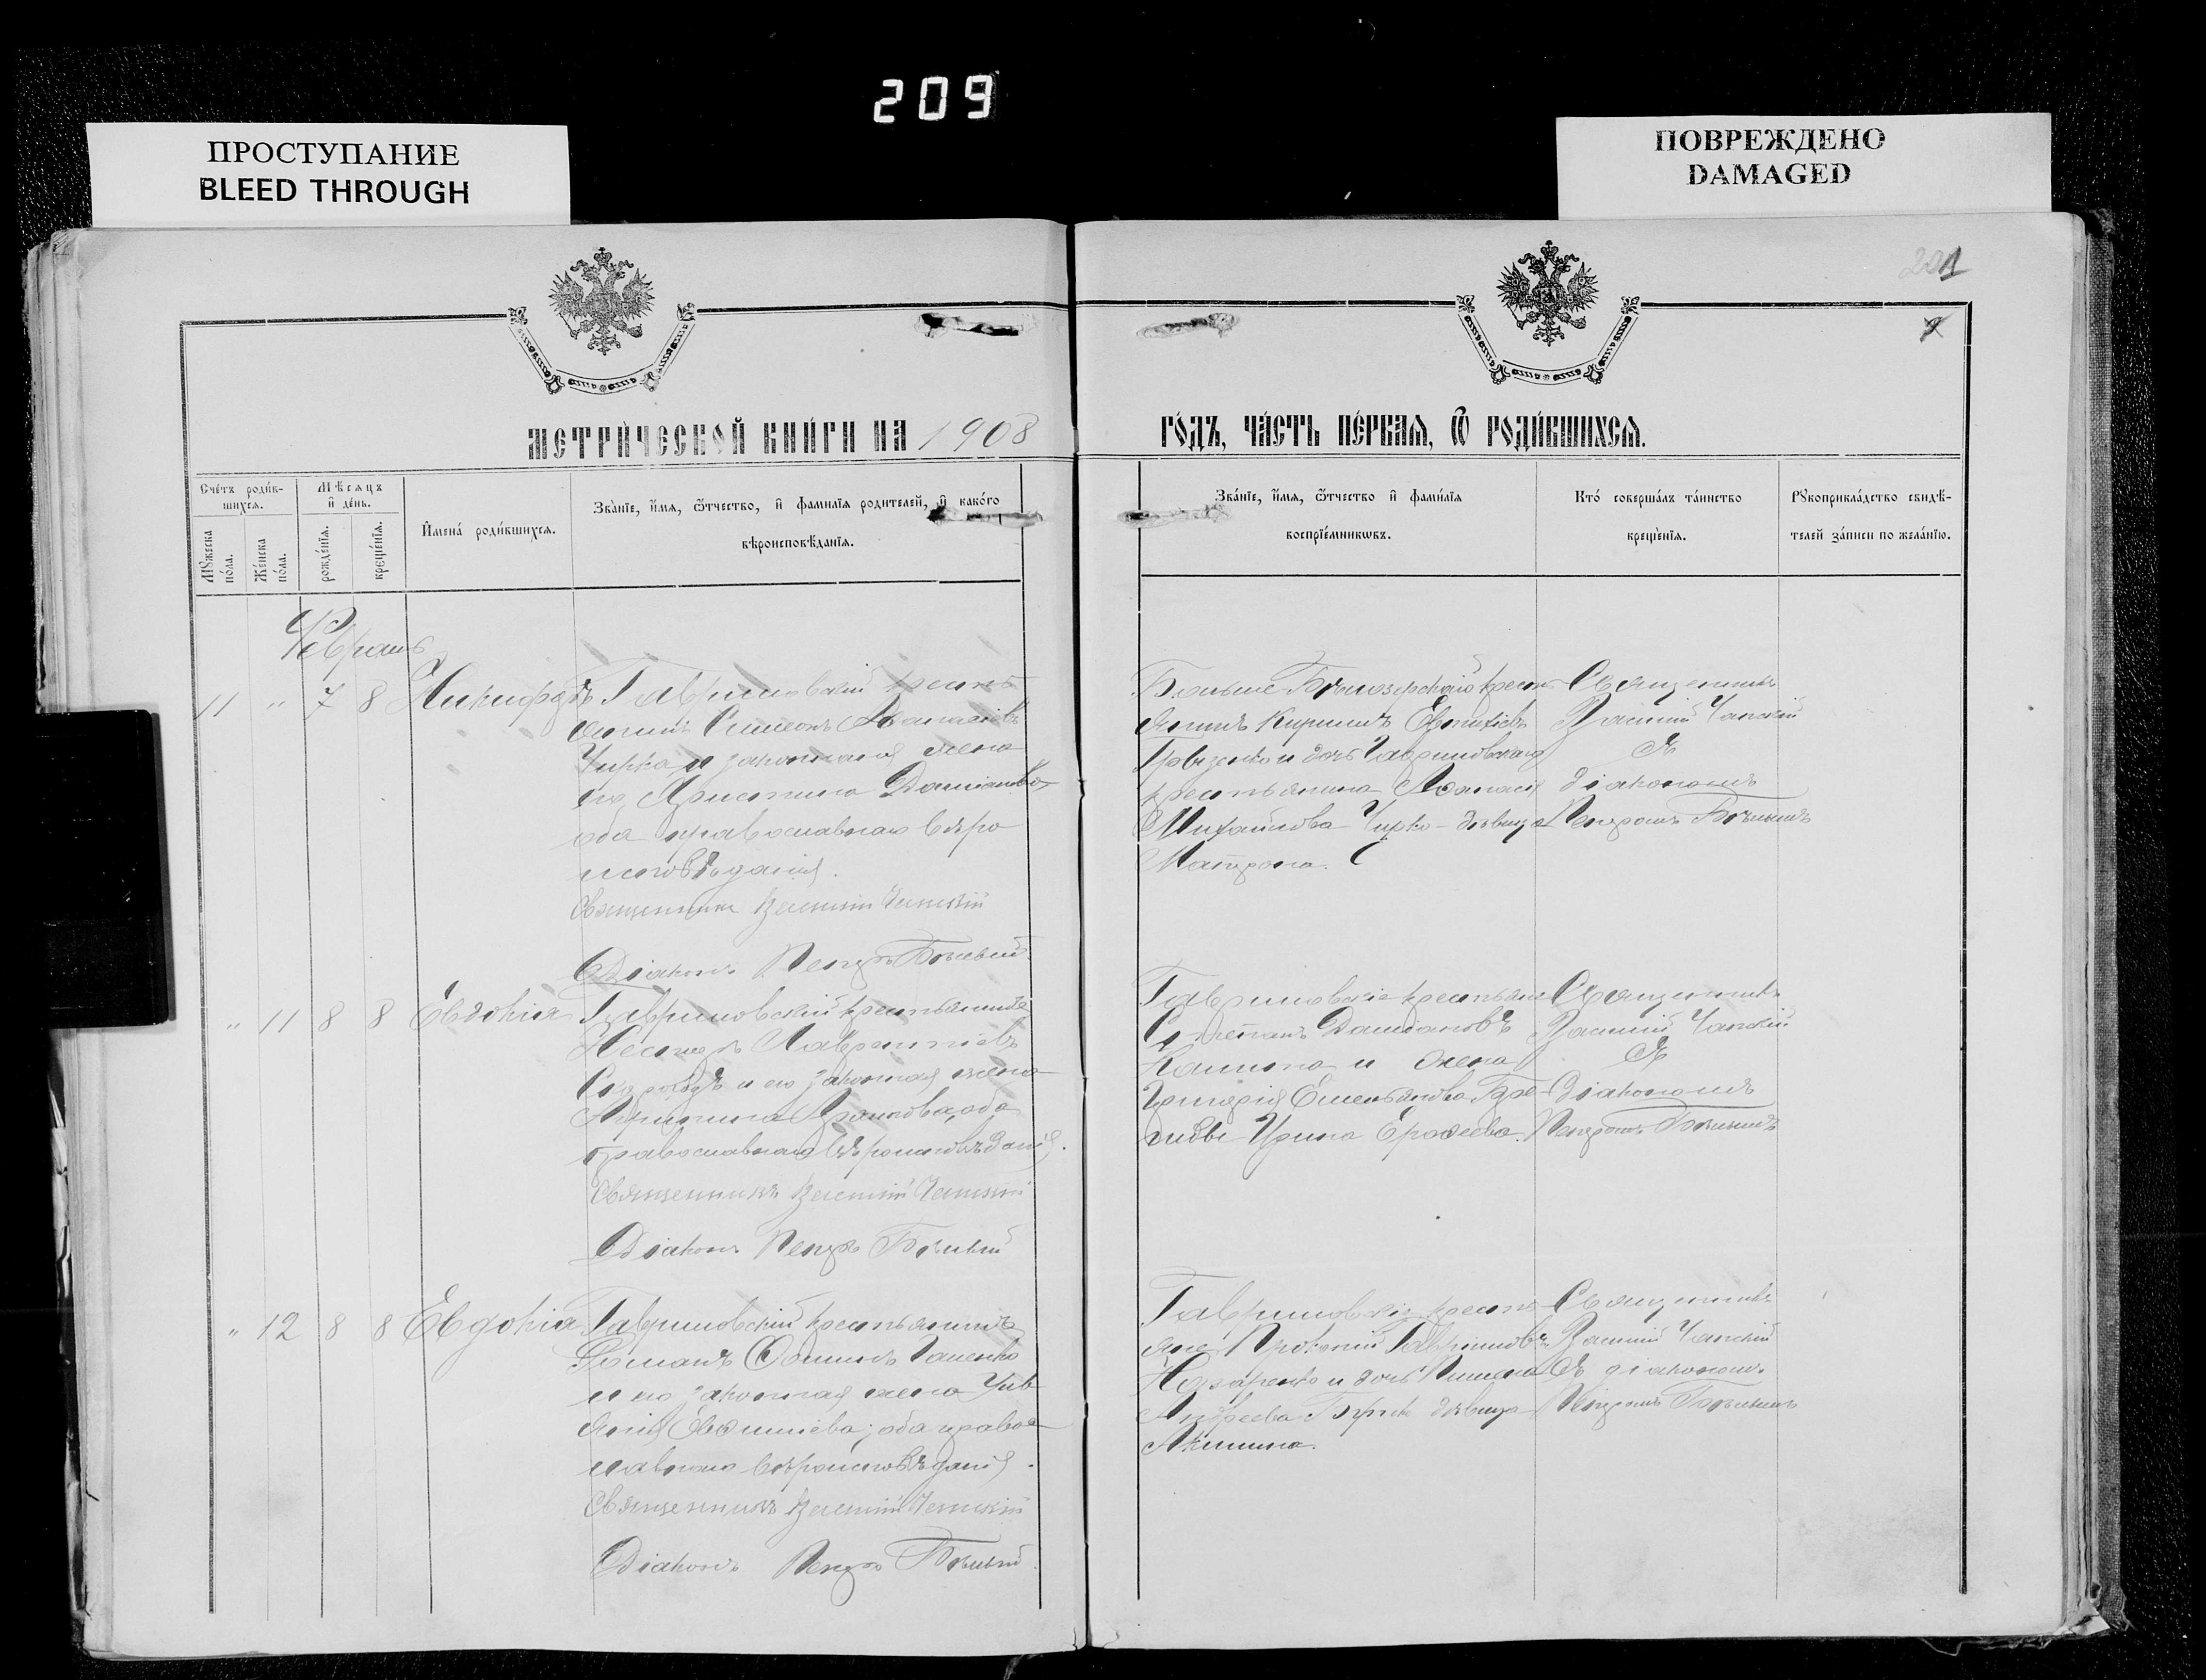 209
ПРОСТУПАНИЕ
BLEED THROUGH
ПОВРЕЖДЕНО
DAMAGED
201
9
МЕТРИ́ЧЕСКОЙ КНИ́ГИ НА 1908
ГО́ДЪ, ЧА́СТЬ ПЕ́РВАѦ, Ѿ РОДИ́ВШИХСѦ.
Сче́тъ роди́в-
шихсѧ.
Мѣ́сѧцъ
и҆ де́нь.
Мꙋ́жеска
по́ла.
Же́нска
по́ла.
рожде́нїѧ.
креще́нїѧ.
И҆мена̀ роди́вшихсѧ.
Зва́нїе, и҆́мѧ, ѻ҆́тчество, и҆ фами́лїѧ родителей, и҆ како́го
вѣроисповѣ́данїѧ.
Зва́нїе, и҆́мѧ, ѻ҆́тчество и҆ фами́лїѧ
воспрїе́мникѡвъ.
Кто́ соверша́лъ та́инство
креще́нїѧ.
Рꙋкоприкла́дство свидѣ́-
телей за́писи по жела́нїю.
Февраль
11 " 7 8 Никифоръ Гавриловскій кресть-
янинъ Симеонъ Аѳанасіевъ
Чирка и законная жена
его Христина Даміанова
оба православнаго вѣро
исповѣданія.
Священникъ Василій Чапскій
Діаконъ Петръ
Больше Бѣлозерскій крест
янинъ Кириллъ Евтихіевъ
и дочь Гавриловскаго
крестьянина Аѳанасія
Михайлова Чирко - дѣвица
Матрона.
Священникъ
Василій Чапскій
съ
діакономъ
Петромъ
" 11 8 8 Евдокія Гавриловскій крестьянинъ
Несторъ Лаврентіевъ
и его законная жена
оба
православнаго вѣроисповѣданія.
Священникъ Василій Чапскій
Діаконъ Петръ
Гавриловскіе крестьяне
Стефанъ Даміановъ
Калина и жена
Григорія Емельянова
Ирина Ероѳеева.
Священникъ
Василій Чапскій
съ
діакономъ
Петромъ
" 12 8 8 Евдокія Гавриловскій крестьянинъ
Романъ Ѳоминъ
и его законная жена Ули-
янія Евѳиміева; оба правос
лавнаго вѣроисповѣданія.
Священникъ Василій Чапскій
Діаконъ Петръ
Гавриловскіе кресть-
яне Прокопій Гавриловъ
Назаренко и дочь
Андреева дѣвица
Акилина.
Священникъ
Василій Чапскій
съ діакономъ
Петромъ